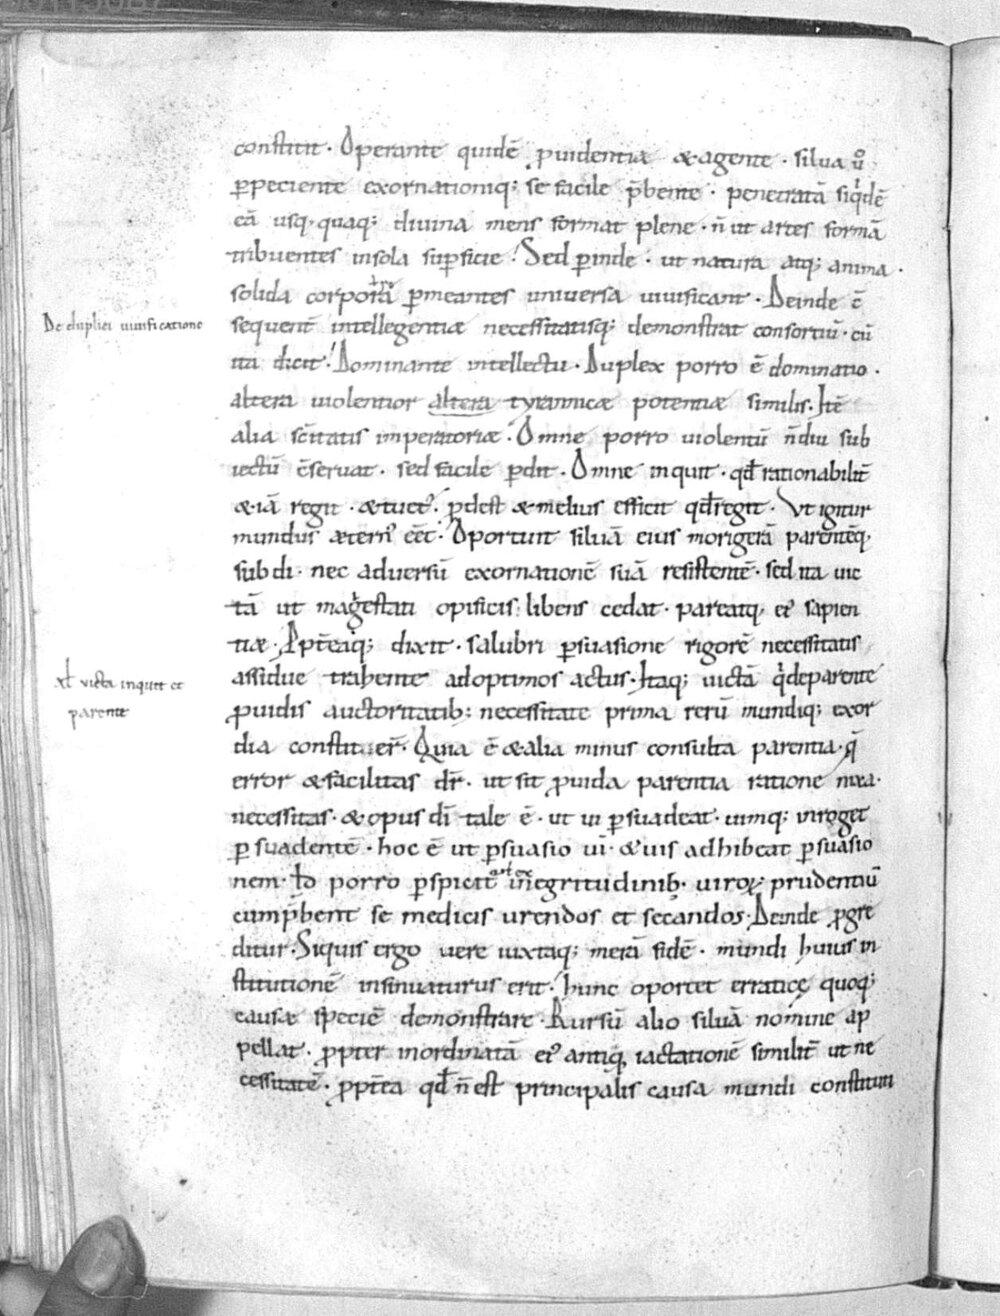 constitit. Operante quidē ꝓuidentia & agente. silua ū̊
ꝑpeciente exornationiq; se facile p̄bente. penetratā siq̇dē
eā usq; quaq; diuina mens format plene. n̄ ut artes formā
tribuentes insola suꝑficie. Sed ꝑinde. ut natura atq; anima.
solida corpora ꝑmeantes uniuersa uiuificant. Deinde ē
De duplici uiuificatione
sequenti intellegentiæ necessitatisq; demonstrat consortiū. cū
ita dicit. Dominante intellectu. Duplex porro ē dominatio.
altera uiolentior altera tyrannicæ potentiæ similis. Itē
alia sc̄itatis imperatoriæ. Omne porro uiolentū n̄diu sub
iectū c̄seruat. sed facile ꝑdit. Omne inquit. qđ rationabilit̄
&iā regit. &tuet᷑. ꝓdest &melius efficit qđregit. Ut igitur
mundus æternꝰ eēt. Oportuit siluā eius morigerā parentēq;
subdi. nec aduersū exornationē suā resistentē. sed ita uic
tā ut magestati opificis libens cedat. pareatq; eiꝰ sapien
tiæ. Apt̄eaq; dixit. salubri ꝑsuasione rigorē necessitatis
assidue trahente adoptimos actus. Itaq; uictā q̇deparente
ꝉ uicta inquit et
parente
ꝓuidis auctoritatib; necessitate prima rerū mundiq; exor
dia constituer̄. Quia ē &alia minus consulta parentia. q̄
error &facilitas dr̄. ut sit ꝓuida parentia ratione nixa.
necessitas. &opus dī tale ē. ut ui ꝑsuadeat. uimq; inroget
ꝑsuadentē. hoc ē ut ꝑsuasio ui. &uis adhibeat ꝑsuasio
nem. Id porro ꝑspicit̄ in egritudinib; uiroꝝ prudentiū
cump̄bent se medicis urendos et secandos. Deinde ꝓgre
ditur. Siquis ergo uere iuxtaq; merā fidē. mundi huius in
stitutionē insinuaturus erit. hunc oportet erraticę quoq;
causæ speciē demonstrare. Rursū alio siluā nomine ap
pellat. ꝓpter inordinatā eiꝰ antiq̄ iactationē similit̄ ut ne
cessitatē. ꝓpt̄ea qđ n̄est principalis causa mundi constituti